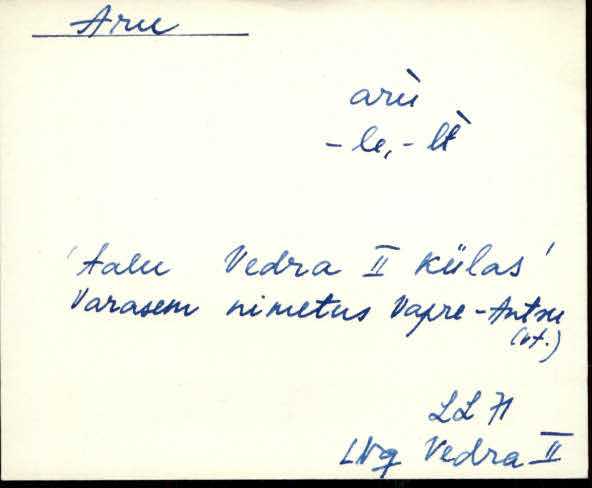 Aru
arù
-le, -lt̀
'talu Vedra II külas'
Varasem nimetus Vapre-Antsu
(vt.)
LL 71
LNg Vedra II